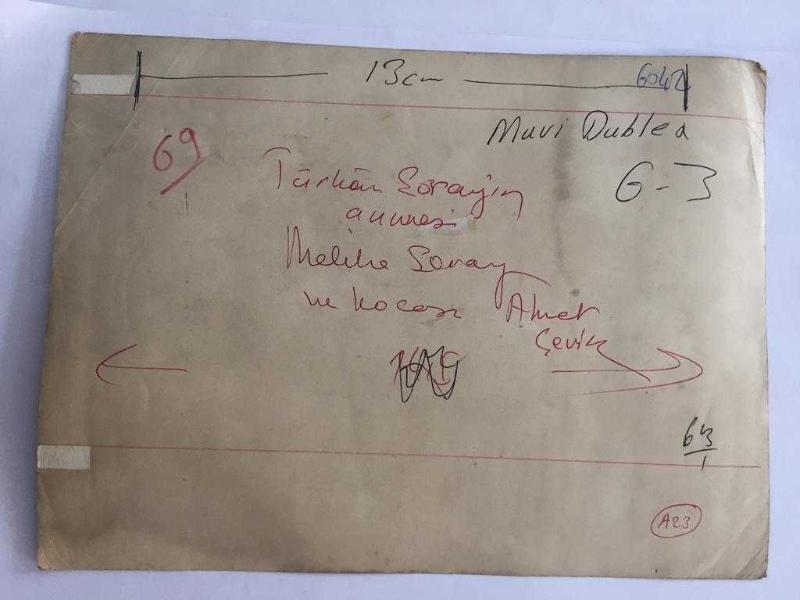 13cm
6042
Mavi Dublea
69
G-3
Türkân Şorayın
annesi
Meliha Şoray
ve kocası Ahmet
Çevik
64
1
A23